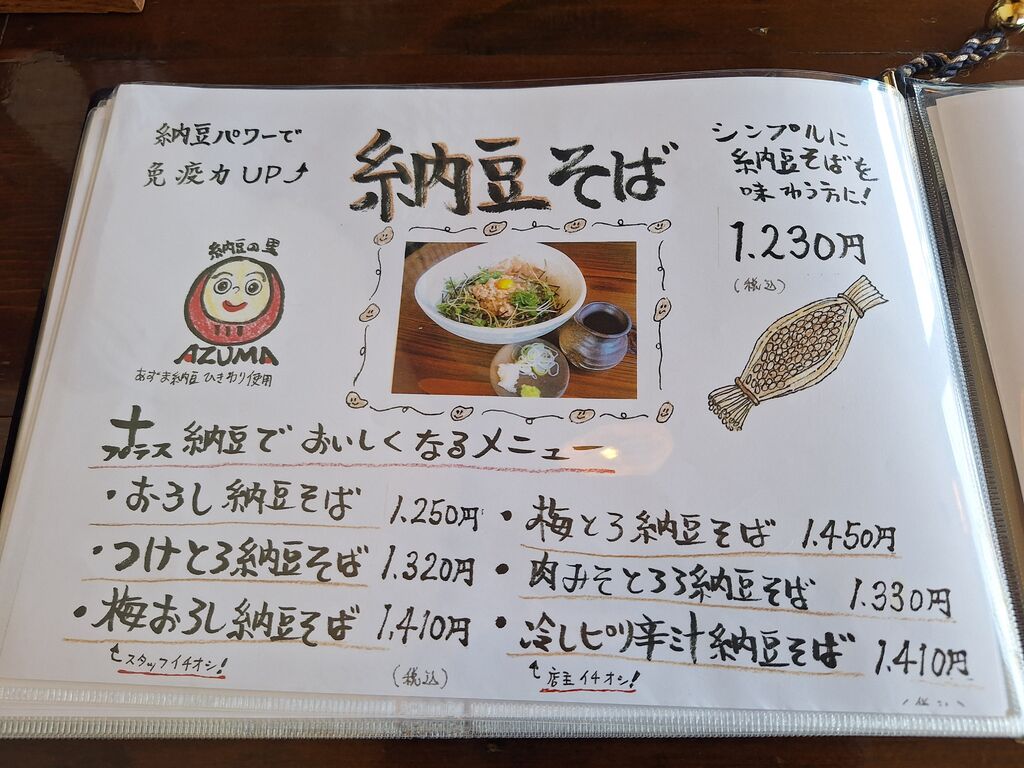 納豆パワーで
免疫力UP
納豆そば
シンプルに
納豆そばを
味わう方に!
1.230円
(税込)
納豆の里
AZUMA
あずま納豆 ひきわり使用
+
プラス納豆でおいしくなるメニュー
・おろし納豆そば 1.250円
・つけとろ納豆そば 1.320円
・梅おろし納豆そば 1.410円
スタッフイチオシ!
(税込)
・梅とろ納豆そば 1.450円
・肉みそとろろ納豆そば 1.330円
・冷しピリ辛汁納豆そば 1.410円
店主イチオシ!